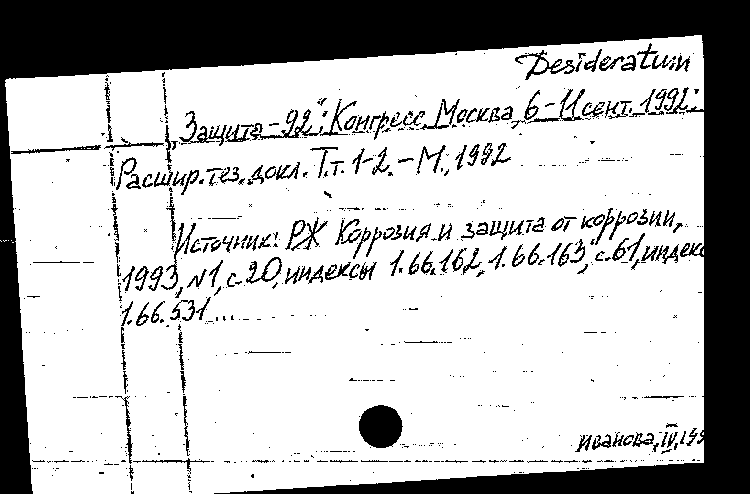 Desideratum
„Защита-92": Конгресс, Москва, 6-11 сент. 1992:
Расшир. тез. докл. Т.т. 1-2. - М., 1992
Источник: РЖ Коррозия и защита от коррозии,
1993, №1, с. 20, индексы 1.66.162, 1.66.163, с. 61, индекс
1.66.531...
Иванова, IV, 199